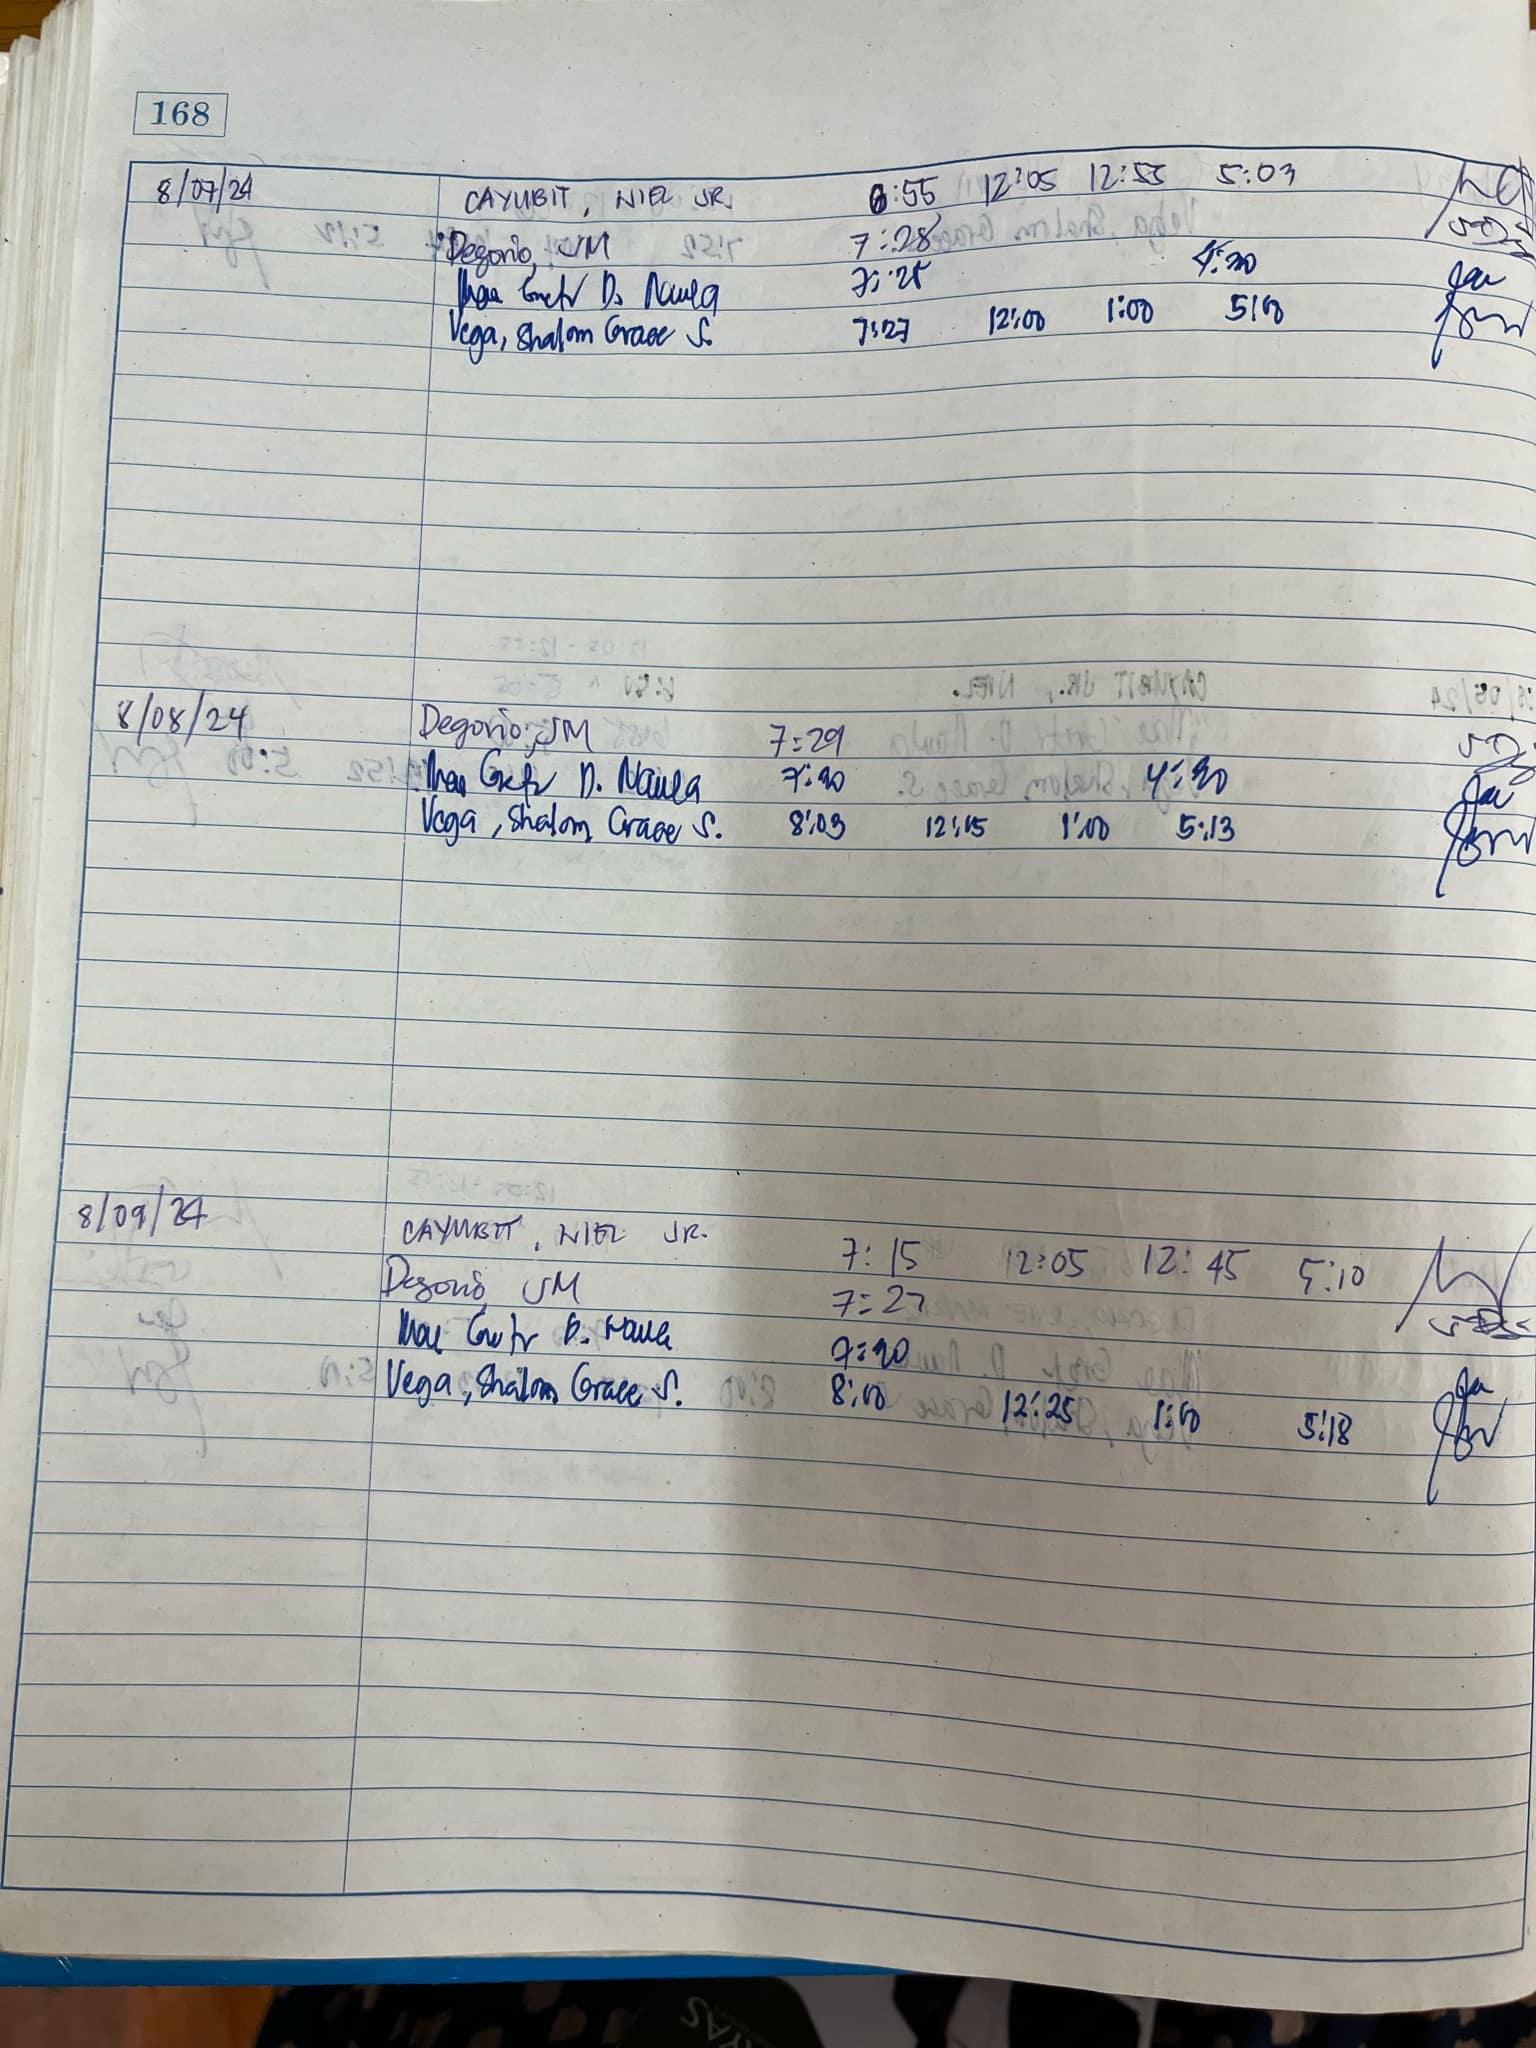 168
8/07/24 CAYUBIT, NIEL JR. 6:55 12:05 12:55 5:03
Degorio, JM 7:28
Mae D. Nawla 7:25 4:30
Vega, Shalom Grace S. 7:27 12:00 1:00 5:10
8/08/24 Degorio, JM 7:29
D. 7:20 4:30
Vega, Shalom Grace S. 8:03 12:15 1:00 5:13
8/09/24 CAYUBIT, NIEL JR. 7:15 12:05 12:45 5:10
Degorio JM 7:27
D. 7:20
Vega, Shalom Grace S. 8:00 12:25 1:00 5:18